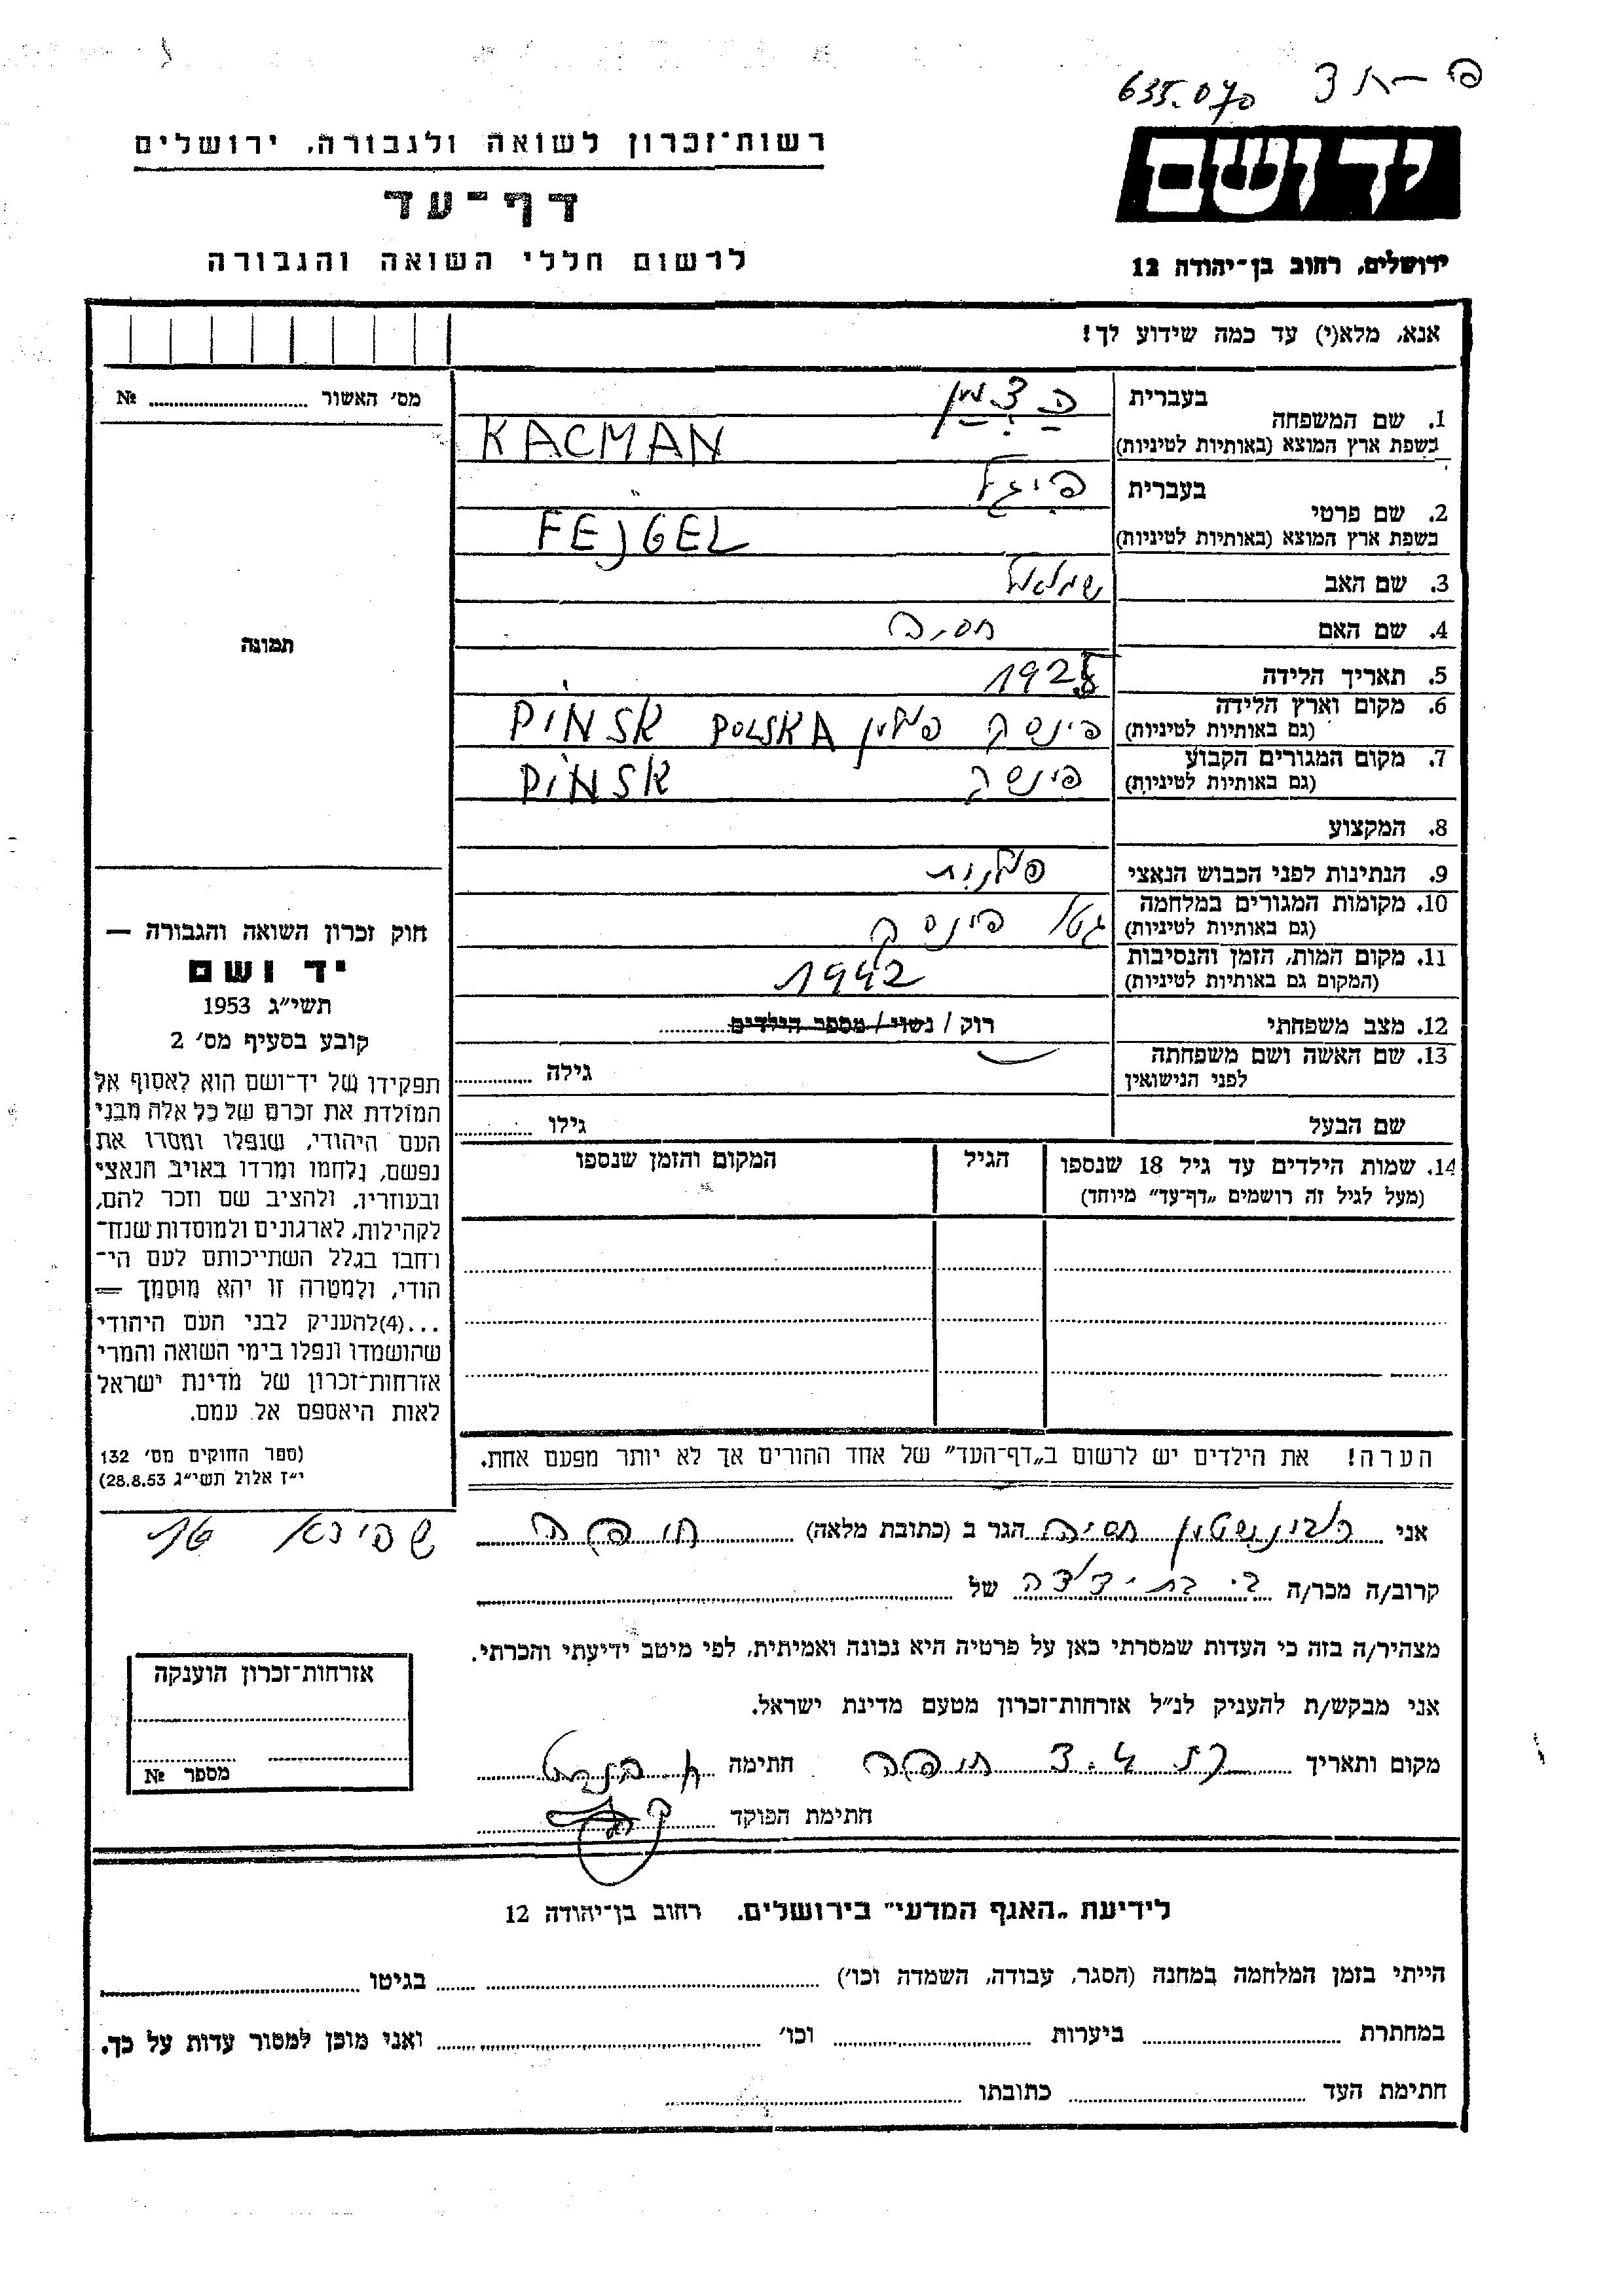 635.070
רשות־זכרון לשואה ולגבורה, ירושלים
יד ושם
דף־עד
לרשום חללי השואה והגבורה
ירושלים, רחוב בן־יהודה 12
אנא, מלא(י) עד כמה שידוע לך!
מס׳ האשור № ........
1. שם המשפחה
בעברית כצמן
בשפת ארץ המוצא (באותיות לטיניות) KACMAN
2. שם פרטי
בעברית פיגל
בשפת ארץ המוצא (באותיות לטיניות) FEJGEL
3. שם האב שמואל
4. שם האם חסיה
5. תאריך הלידה
6. מקום וארץ הלידה
(גם באותיות לטיניות) פינסק פולין POLSKA PINSK
7. מקום המגורים הקבוע
(גם באותיות לטיניות) פינסק PINSK
8. המקצוע
9. הנתינות לפני הכבוש הנאצי פולנית
10. מקומות המגורים במלחמה
(גם באותיות לטיניות) גטו פינסק
11. מקום המות, הזמן והנסיבות
(המקום גם באותיות לטיניות) 1942
12. מצב משפחתי רוק / נשוי / מספר הילדים........
13. שם האשה ושם משפחתה
לפני הנישואין גילה ........
שם הבעל גילו ........
14. שמות הילדים עד גיל 18 שנספו
(מעל לגיל זה רושמים „דף־עד״ מיוחד)
הגיל
המקום והזמן שנספו
תמונה
חוק זכרון השואה והגבורה —
יד ושם
תשי״ג 1953
קובע בסעיף מס׳ 2
תפקידו של יד־ושם הוא לאסוף אל
המולדת את זכרם של כל אלה מבני
העם היהודי, שנפלו ומסרו את
נפשם, נלחמו ומרדו באויב הנאצי
ובעוזריו, ולהציב שם וזכר להם,
לקהילות, לארגונים ולמוסדות שנח־
רחבו בגלל השתייכותם לעם הי־
הודי, ולמטרה זו יהא מוסמך —
...(4)להעניק לבני העם היהודי
שהושמדו ונפלו בימי השואה והמרי
אזרחות־זכרון של מדינת ישראל
לאות היאספם אל עמם.
(ספר החוקים מס׳ 132
י״ז אלול תשי״ג 28.8.53)
הערה! את הילדים יש לרשום ב„דף־העד״ של אחד ההורים אך לא יותר מפעם אחת.
אני רובינשטין חסיה הגר ב (כתובת מלאה) חיפה
שפירא
קרוב/ה מכר/ה בי בת־דודה של ........
מצהיר/ה בזה כי העדות שמסרתי כאן על פרטיה היא נכונה ואמיתית, לפי מיטב ידיעתי והכרתי.
אני מבקש/ת להעניק לנ״ל אזרחות־זכרון מטעם מדינת ישראל.
מקום ותאריך חיפה חתימה
חתימת הפוקד
אזרחות־זכרון הוענקה
מספר №
לידיעת „האגף המדעי״ בירושלים, רחוב בן־יהודה 12
הייתי בזמן המלחמה במחנה (הסגר, עבודה, השמדה וכו׳) ........ בגיטו ........
במחתרת ........ ביערות ........ וכו׳ ........ ואני מוכן למסור עדות על כך.
חתימת העד ........ כתובתו ........